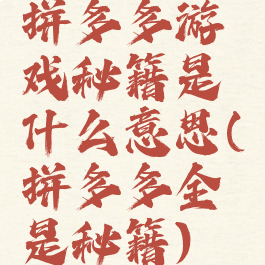 拼多多游
戏秘籍是
什么意思(
拼多多全
是秘籍)